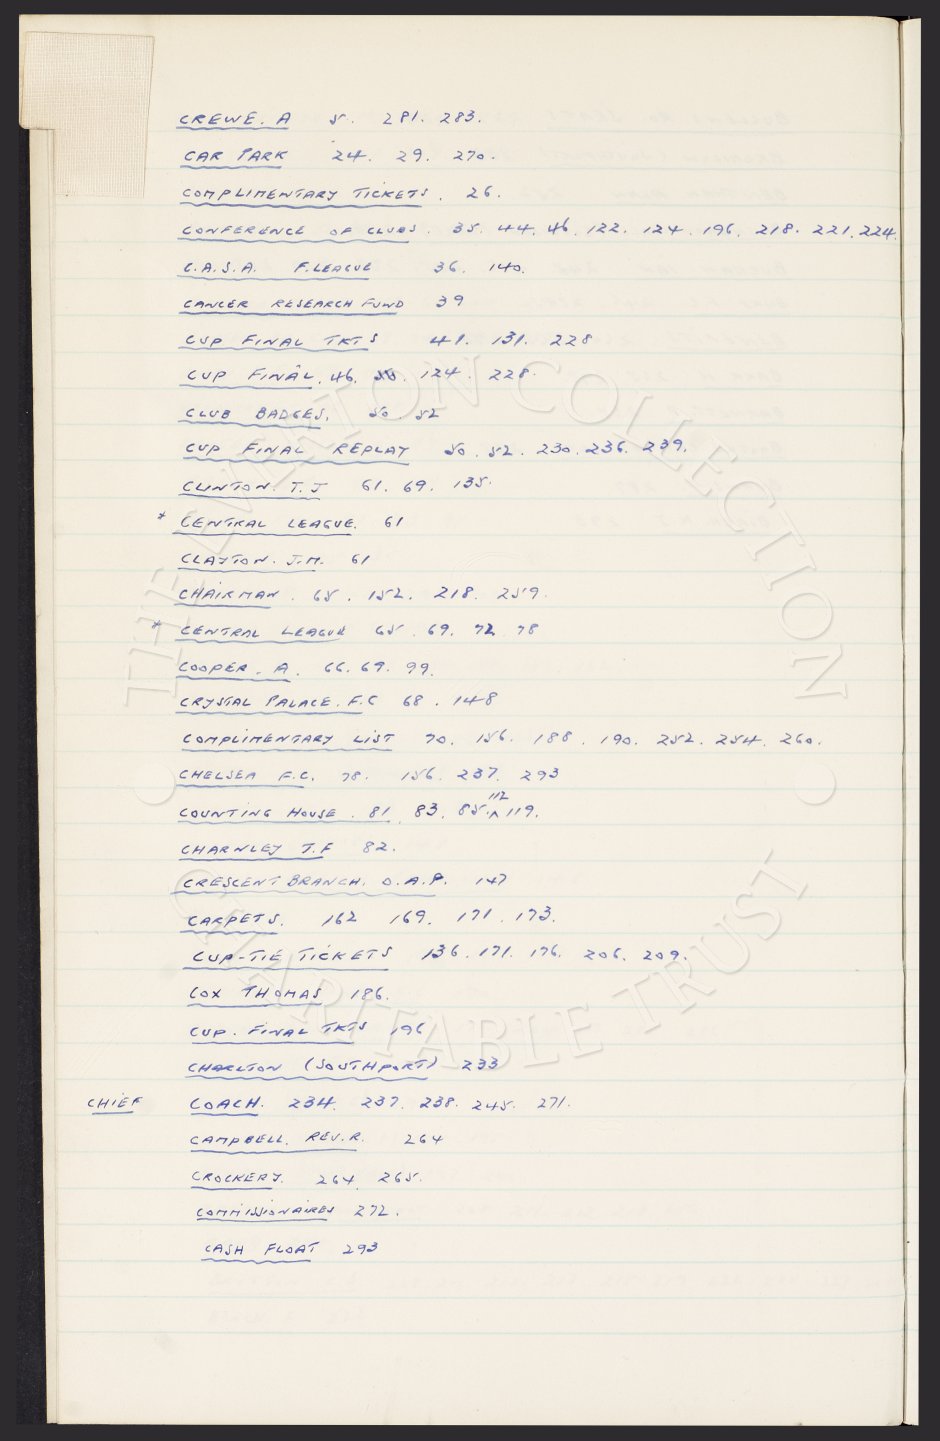 CREWE. A 5. 281. 283.
CAR PARK 24. 29. 270.
COMPLIMENTARY TICKETS. 26.
CONFERENCE OF CLUBS. 35. 44. 46. 122. 124. 196. 218. 221. 224.
C.A.S.A. F. LEAGUE 36. 140.
CANCER RESEARCH FUND 39
CUP FINAL TKTS 41. 131. 228
CUP FINAL. 46. 50. 124. 228.
CLUB BADGES. 50. 52
CUP FINAL REPLAY 50. 52. 230. 236. 239.
CLINTON. T. J 61. 69. 135.
* CENTRAL LEAGUE. 61
CLAYTON. J.M. 61
CHAIRMAN. 65. 152. 218. 259.
* CENTRAL LEAGUE 65. 69. 72. 78
COOPER. A. 66. 69. 99.
CRYSTAL PALACE. F.C 68. 148
COMPLIMENTARY LIST 70. 156. 188. 190. 252. 254. 260.
CHELSEA F.C. 78. 156. 237. 293
COUNTING HOUSE. 81. 83. 85. 112 119.
CHARNLEY T.F 82.
CRESCENT BRANCH. O.A.P. 147
CARPETS. 162 169. 171. 173.
CUP-TIE TICKETS 136. 171. 176. 206. 209.
COX THOMAS 186.
CUP. FINAL TKTS 196
CHARLTON (SOUTHPORT) 233
CHIEF COACH. 234. 237. 238. 245. 271.
CAMPBELL. REV. R. 264
CROCKERY. 264. 265.
COMMISSIONAIRES 272.
CASH FLOAT 293
THE EVERTON COLLECTION
CHARITABLE TRUST